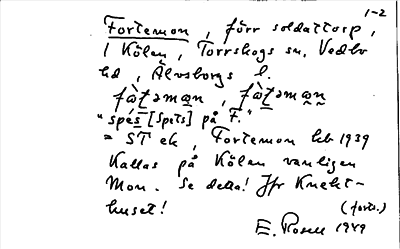 1-2
Fortemon, förr soldattorp,
i Kölen, Torrskogs sn. Vedbo
hd, Älvsborgs l.
fàṯəmạn, fàṯəmạṇ
"spés [Spets] på F."
= ST ek, Fortemon hb 1939
Kallas på Kölen vanligen
Mon. Se detta! Jfr Knekt-
huset! (forts.)
E. Rosell 1949